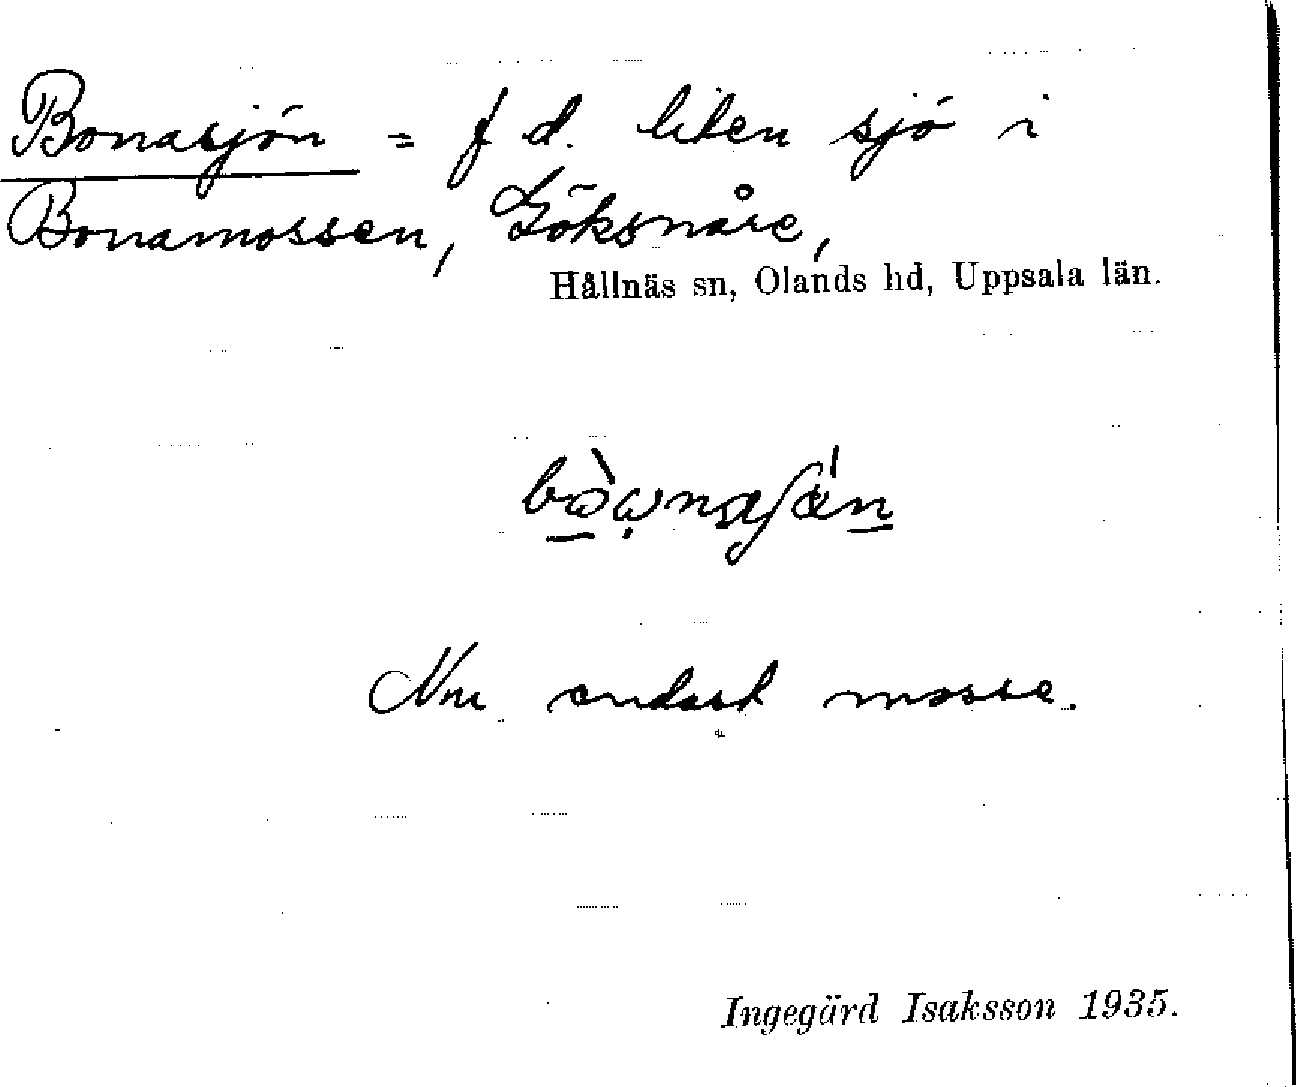 Bonasjön = f d. liten sjö i
Bonamossen, Göksnåre,
Hållnäs sn, Olands hd, Uppsala län.
Nu endast mosse.
Ingegärd Isaksson 1935.